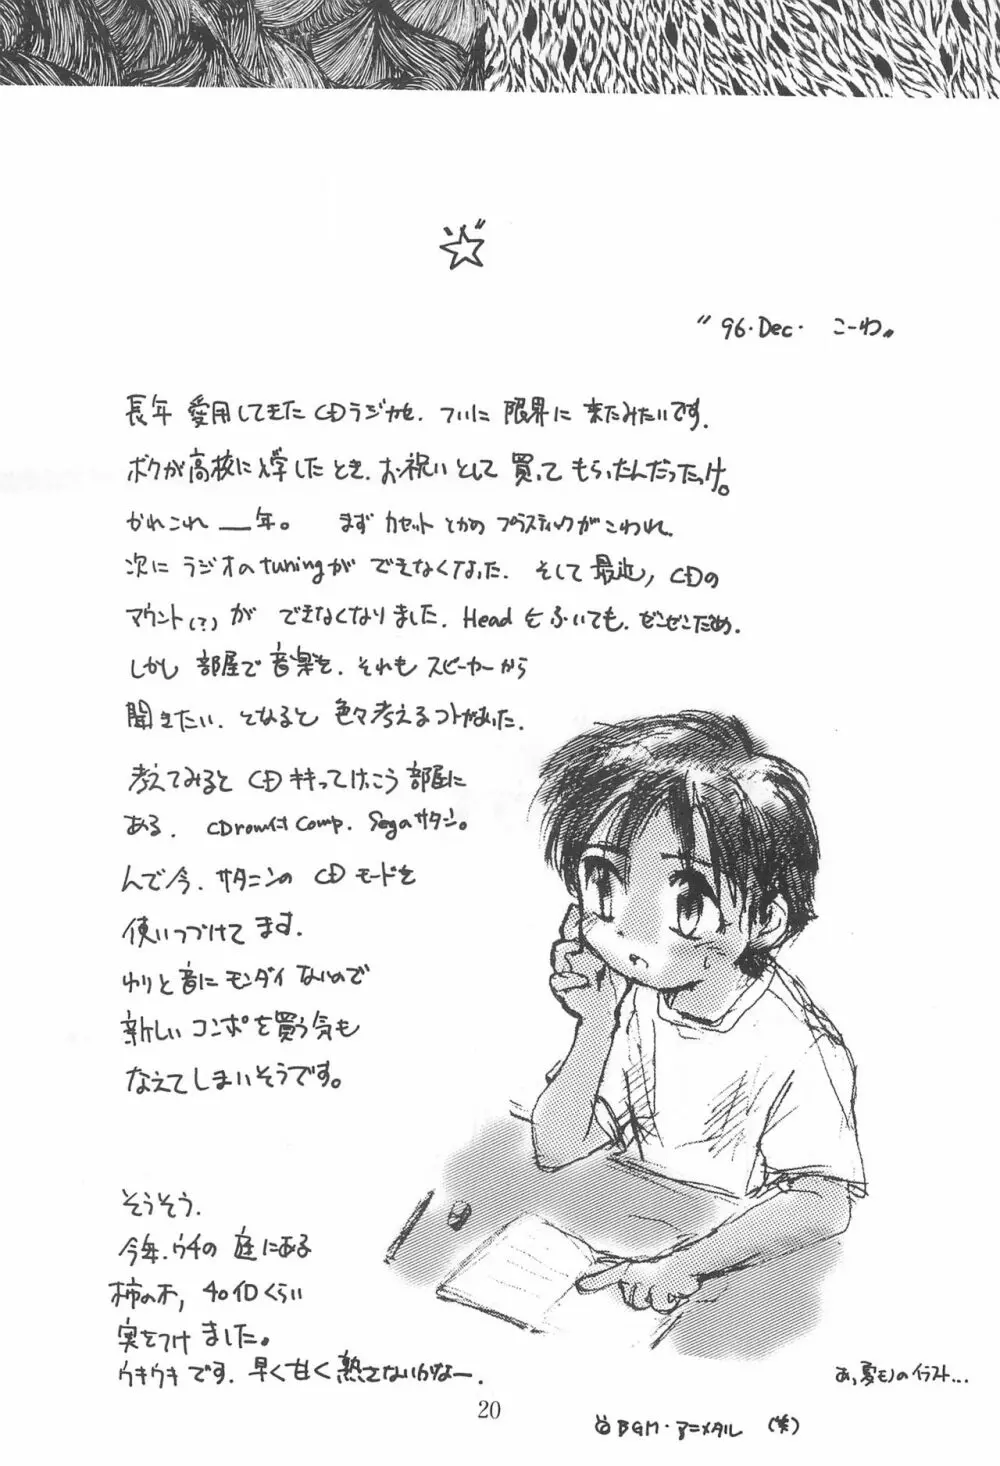 "96.Dec. こーわ"
長年 愛用してきた CDラジカセ、ついに 限界に 来たみたいです.
ボクが高校に入学したとき、お祝いとして 買って もらったんだったっけ。
かれこれ __年。 まず カセット とかの プラスティックがこわれ、
次に ラジオのtuningが できなくなった. そして 最近, CDの
マウント(?)が できなくなりました. Head をふいても、ぜんぜんだめ.
しかし 部屋で 音楽を、それも スピーカーから
聞きたい、となると 色々考えるコトがあった.
考えてみると CD キキって けっこう 部屋に
ある. CDrom付 Comp. Segaサターン。
んで今、サターンの CD モードを
使いつづけてます.
わりと音に モンダイ ないので
新しい コンポを買う気も
なえてしまいそうです。
そうそう.
今年、ウチの 庭にある
柿の木, 40個くらい
実をつけました。
ウキウキです. 早く甘く熟さないかなー.
あっ夏モノのイラスト...
20
BGM・アニメタル (笑)